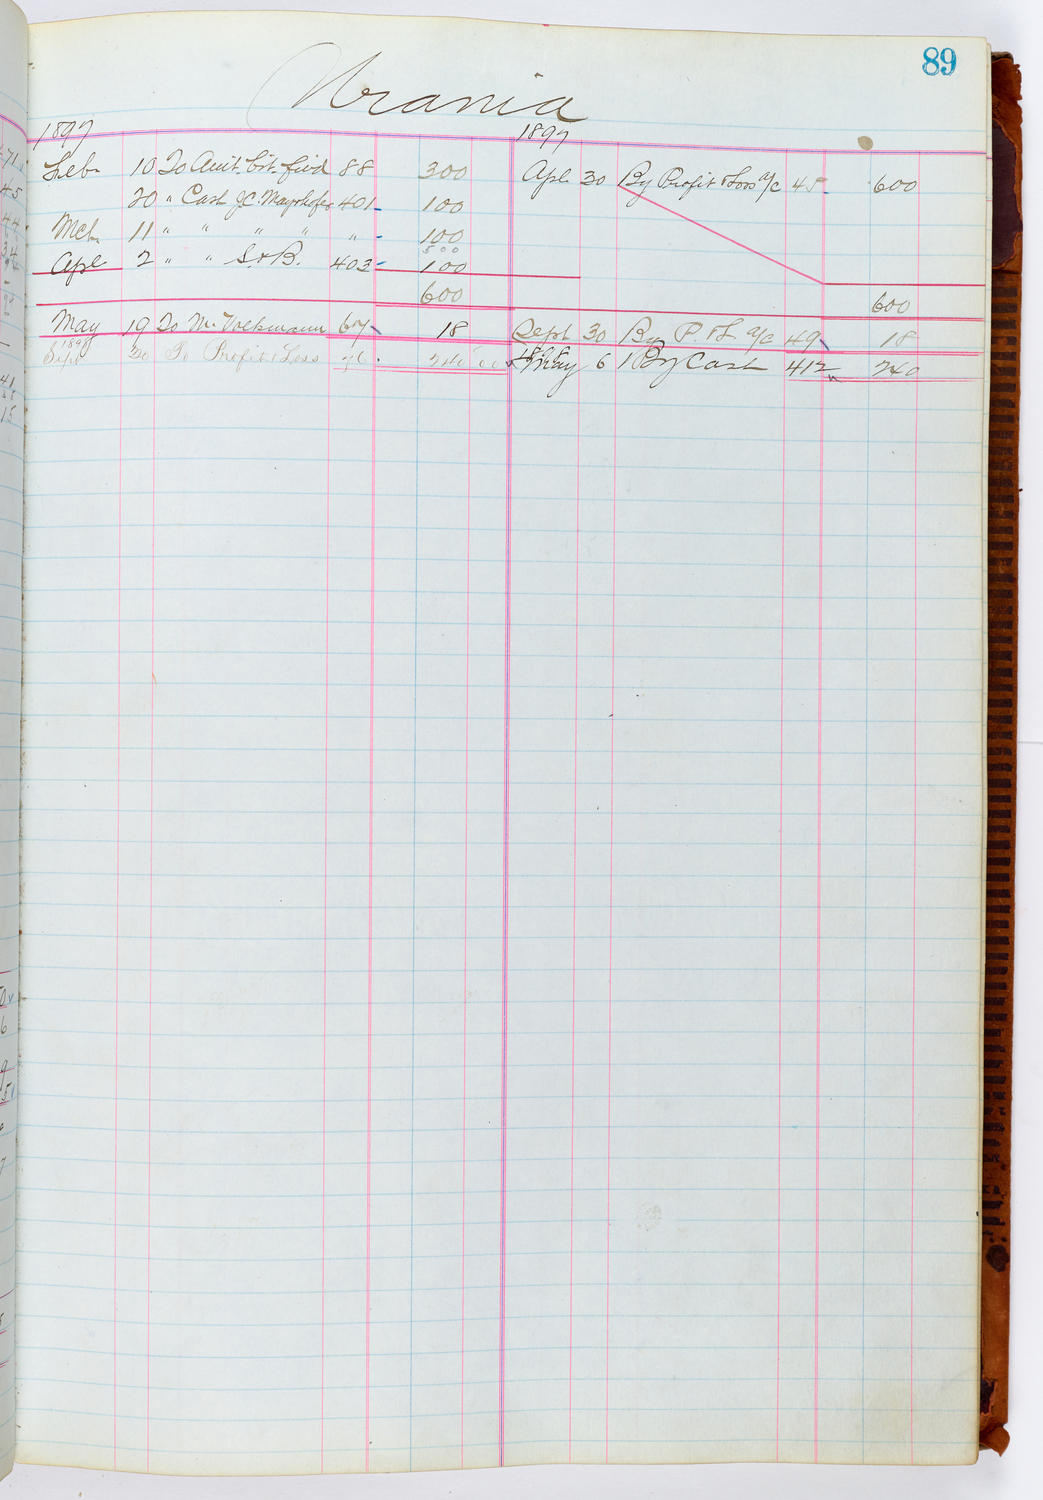 89
Urania
1897 1897
Feb. 10 To Amt. Cr. fwd 88 300 Apl. 30 By Profit & Loss a/c 45 600
20 " Cash J.C. Mayrhofer 401 100
Mch. 11 " " " " " 100
500
Apl 2 " " S. & B. 403 100
600 600
May 19 To M. Volkmann 67 18 Sept 30 By P. & L. a/c 49 18
1898 1898
Sept 30 To Profit & Loss 76 240 00 May 6 By Cash 412 240